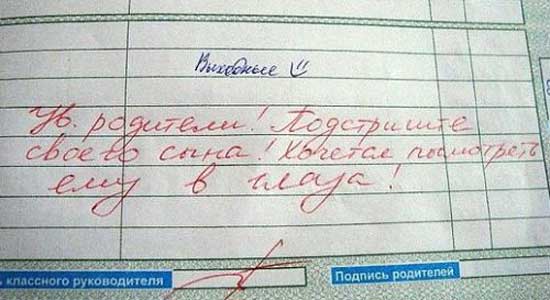 Выходные
Ув. родители! Подстригите
своего сына! Хочется посмотреть
ему в глаза!
ь классного руководителя
Подпись родителей